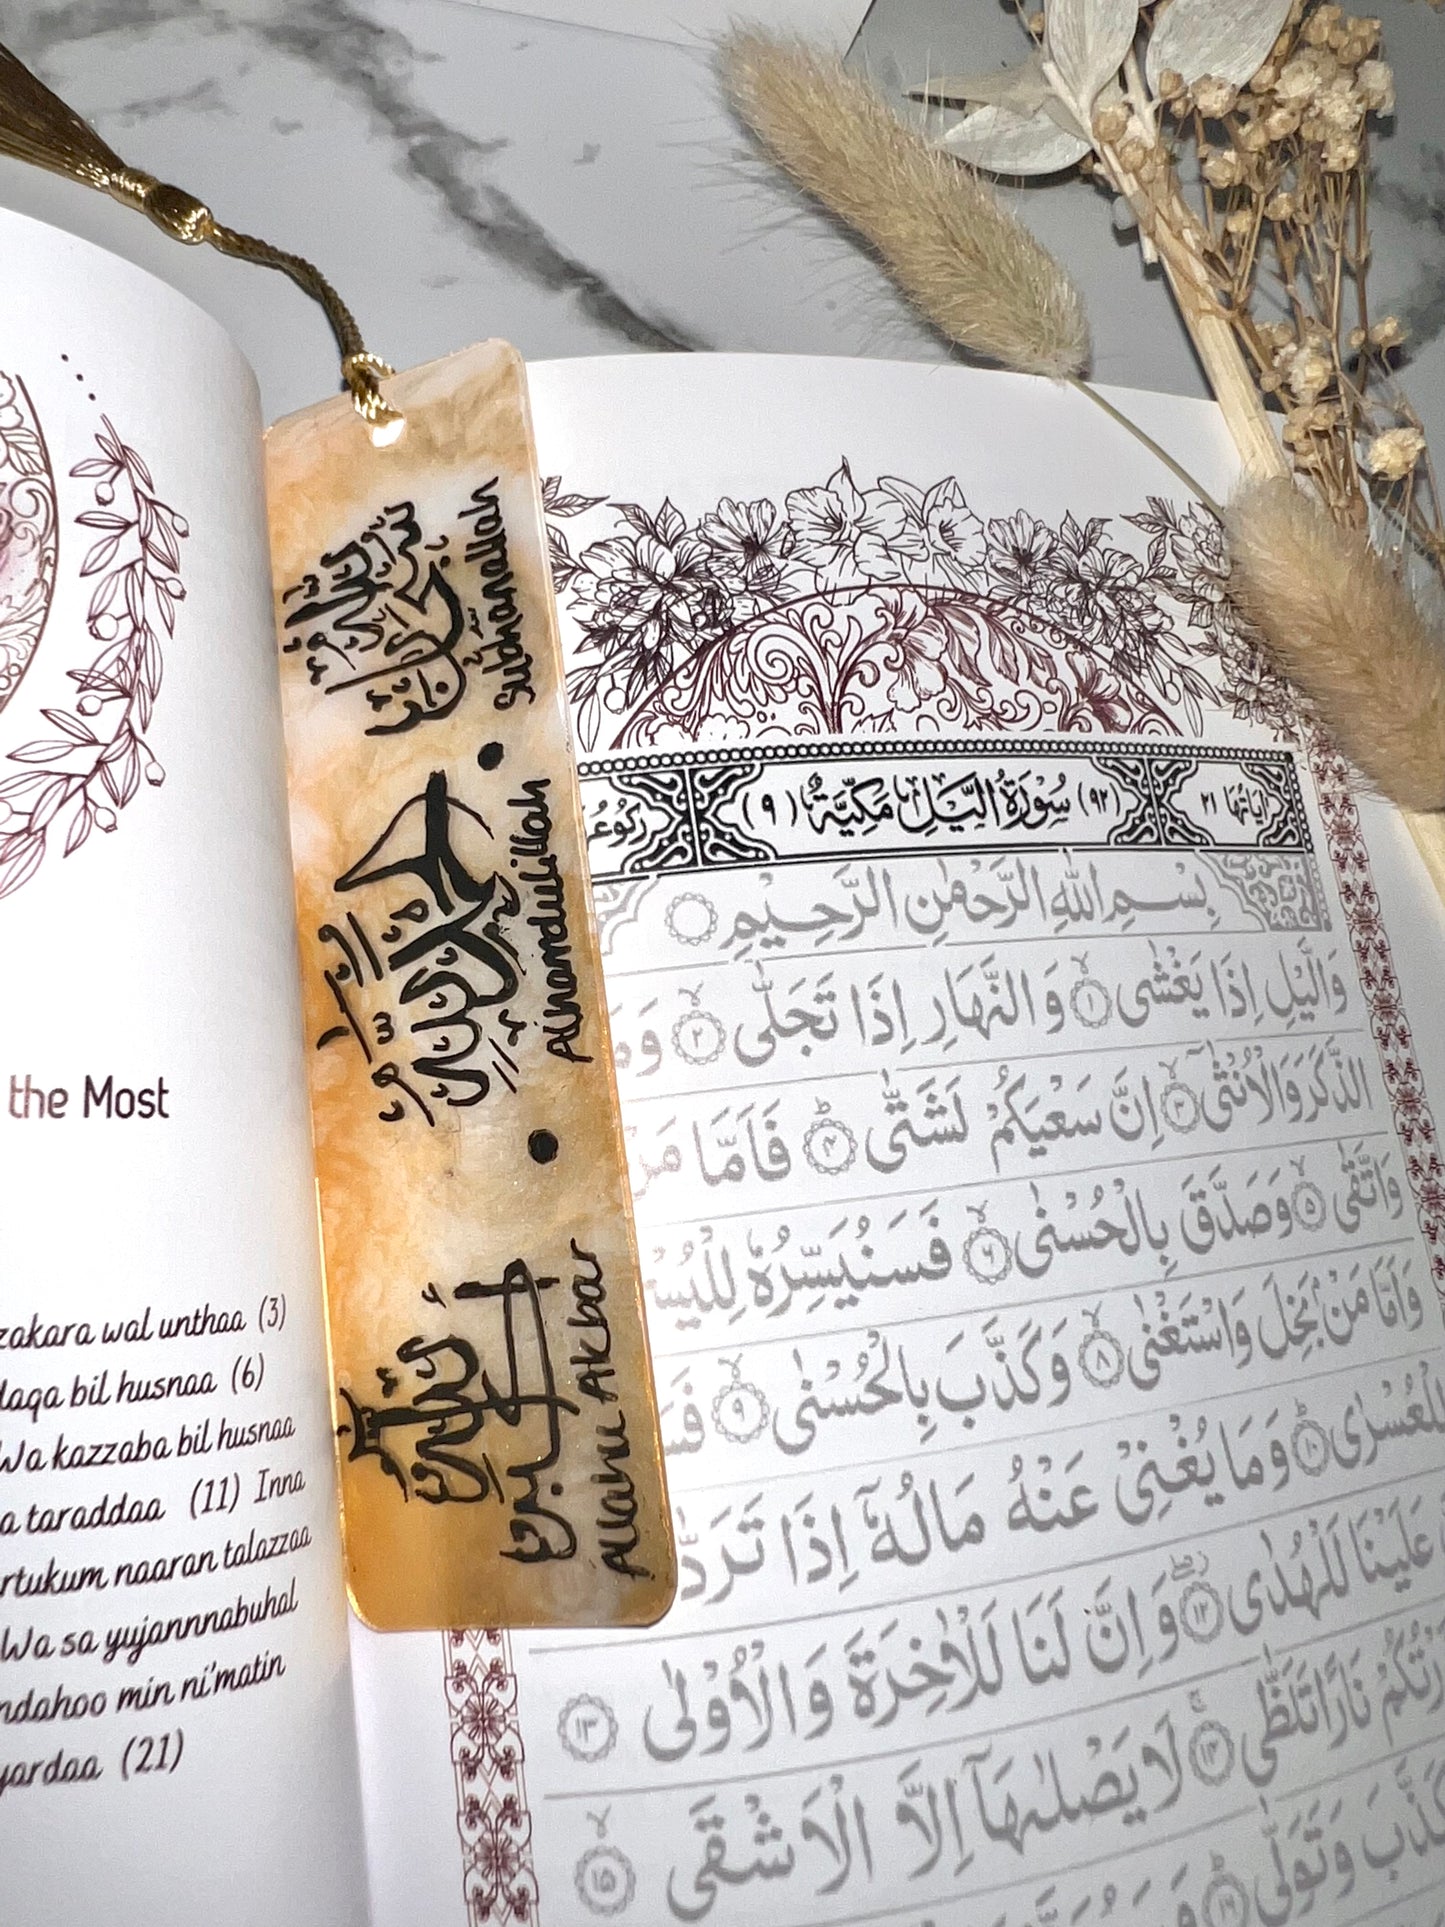 the Most
zakara wal unthaa (3)
daqa bil husnaa (6)
Wa kazzaba bil husnaa
a taraddaa (11) Inna
rtukum naaran talazzaa
Wa sa yujannnabuhal
ndahoo min ni'matin
yardaa (21)
سبحان الله
Subhanallah
الحمد لله
Alhamdulillah
الله أكبر
Allahu Akbar
اٰيَاتُهَا ٢١ (٩٢) سُوْرَةُ الَّيْلِ مَكِّيَّةٌ (٩)
بِسْمِ اللّٰهِ الرَّحْمٰنِ الرَّحِيْمِ
وَالَّيْلِ اِذَا يَغْشٰى ١ وَالنَّهَارِ اِذَا تَجَلّٰى ٢ وَمَ
الذَّكَرَ وَالْاُنْثٰى ٣ اِنَّ سَعْيَكُمْ لَشَتّٰى ٤ فَاَمَّا مَنْ
وَاتَّقٰى ٥ وَصَدَّقَ بِالْحُسْنٰى ٦ فَسَنُيَسِّرُهٗ لِلْيُسْ
وَاَمَّا مَنْ بَخِلَ وَاسْتَغْنٰى ٨ وَكَذَّبَ بِالْحُسْنٰى ٩ فَسَ
لِلْعُسْرٰى ١٠ وَمَا يُغْنِيْ عَنْهُ مَالُهٗٓ اِذَا تَرَدّٰ
عَلَيْنَا لَلْهُدٰى ١٢ وَاِنَّ لَنَا لَلْاٰخِرَةَ وَالْاُوْلٰى ١٣
رْتُكُمْ نَارًا تَلَظّٰى ١٤ لَا يَصْلٰىهَآ اِلَّا الْاَشْقَى ١٥
كَذَّبَ وَتَوَلّٰى ١٦